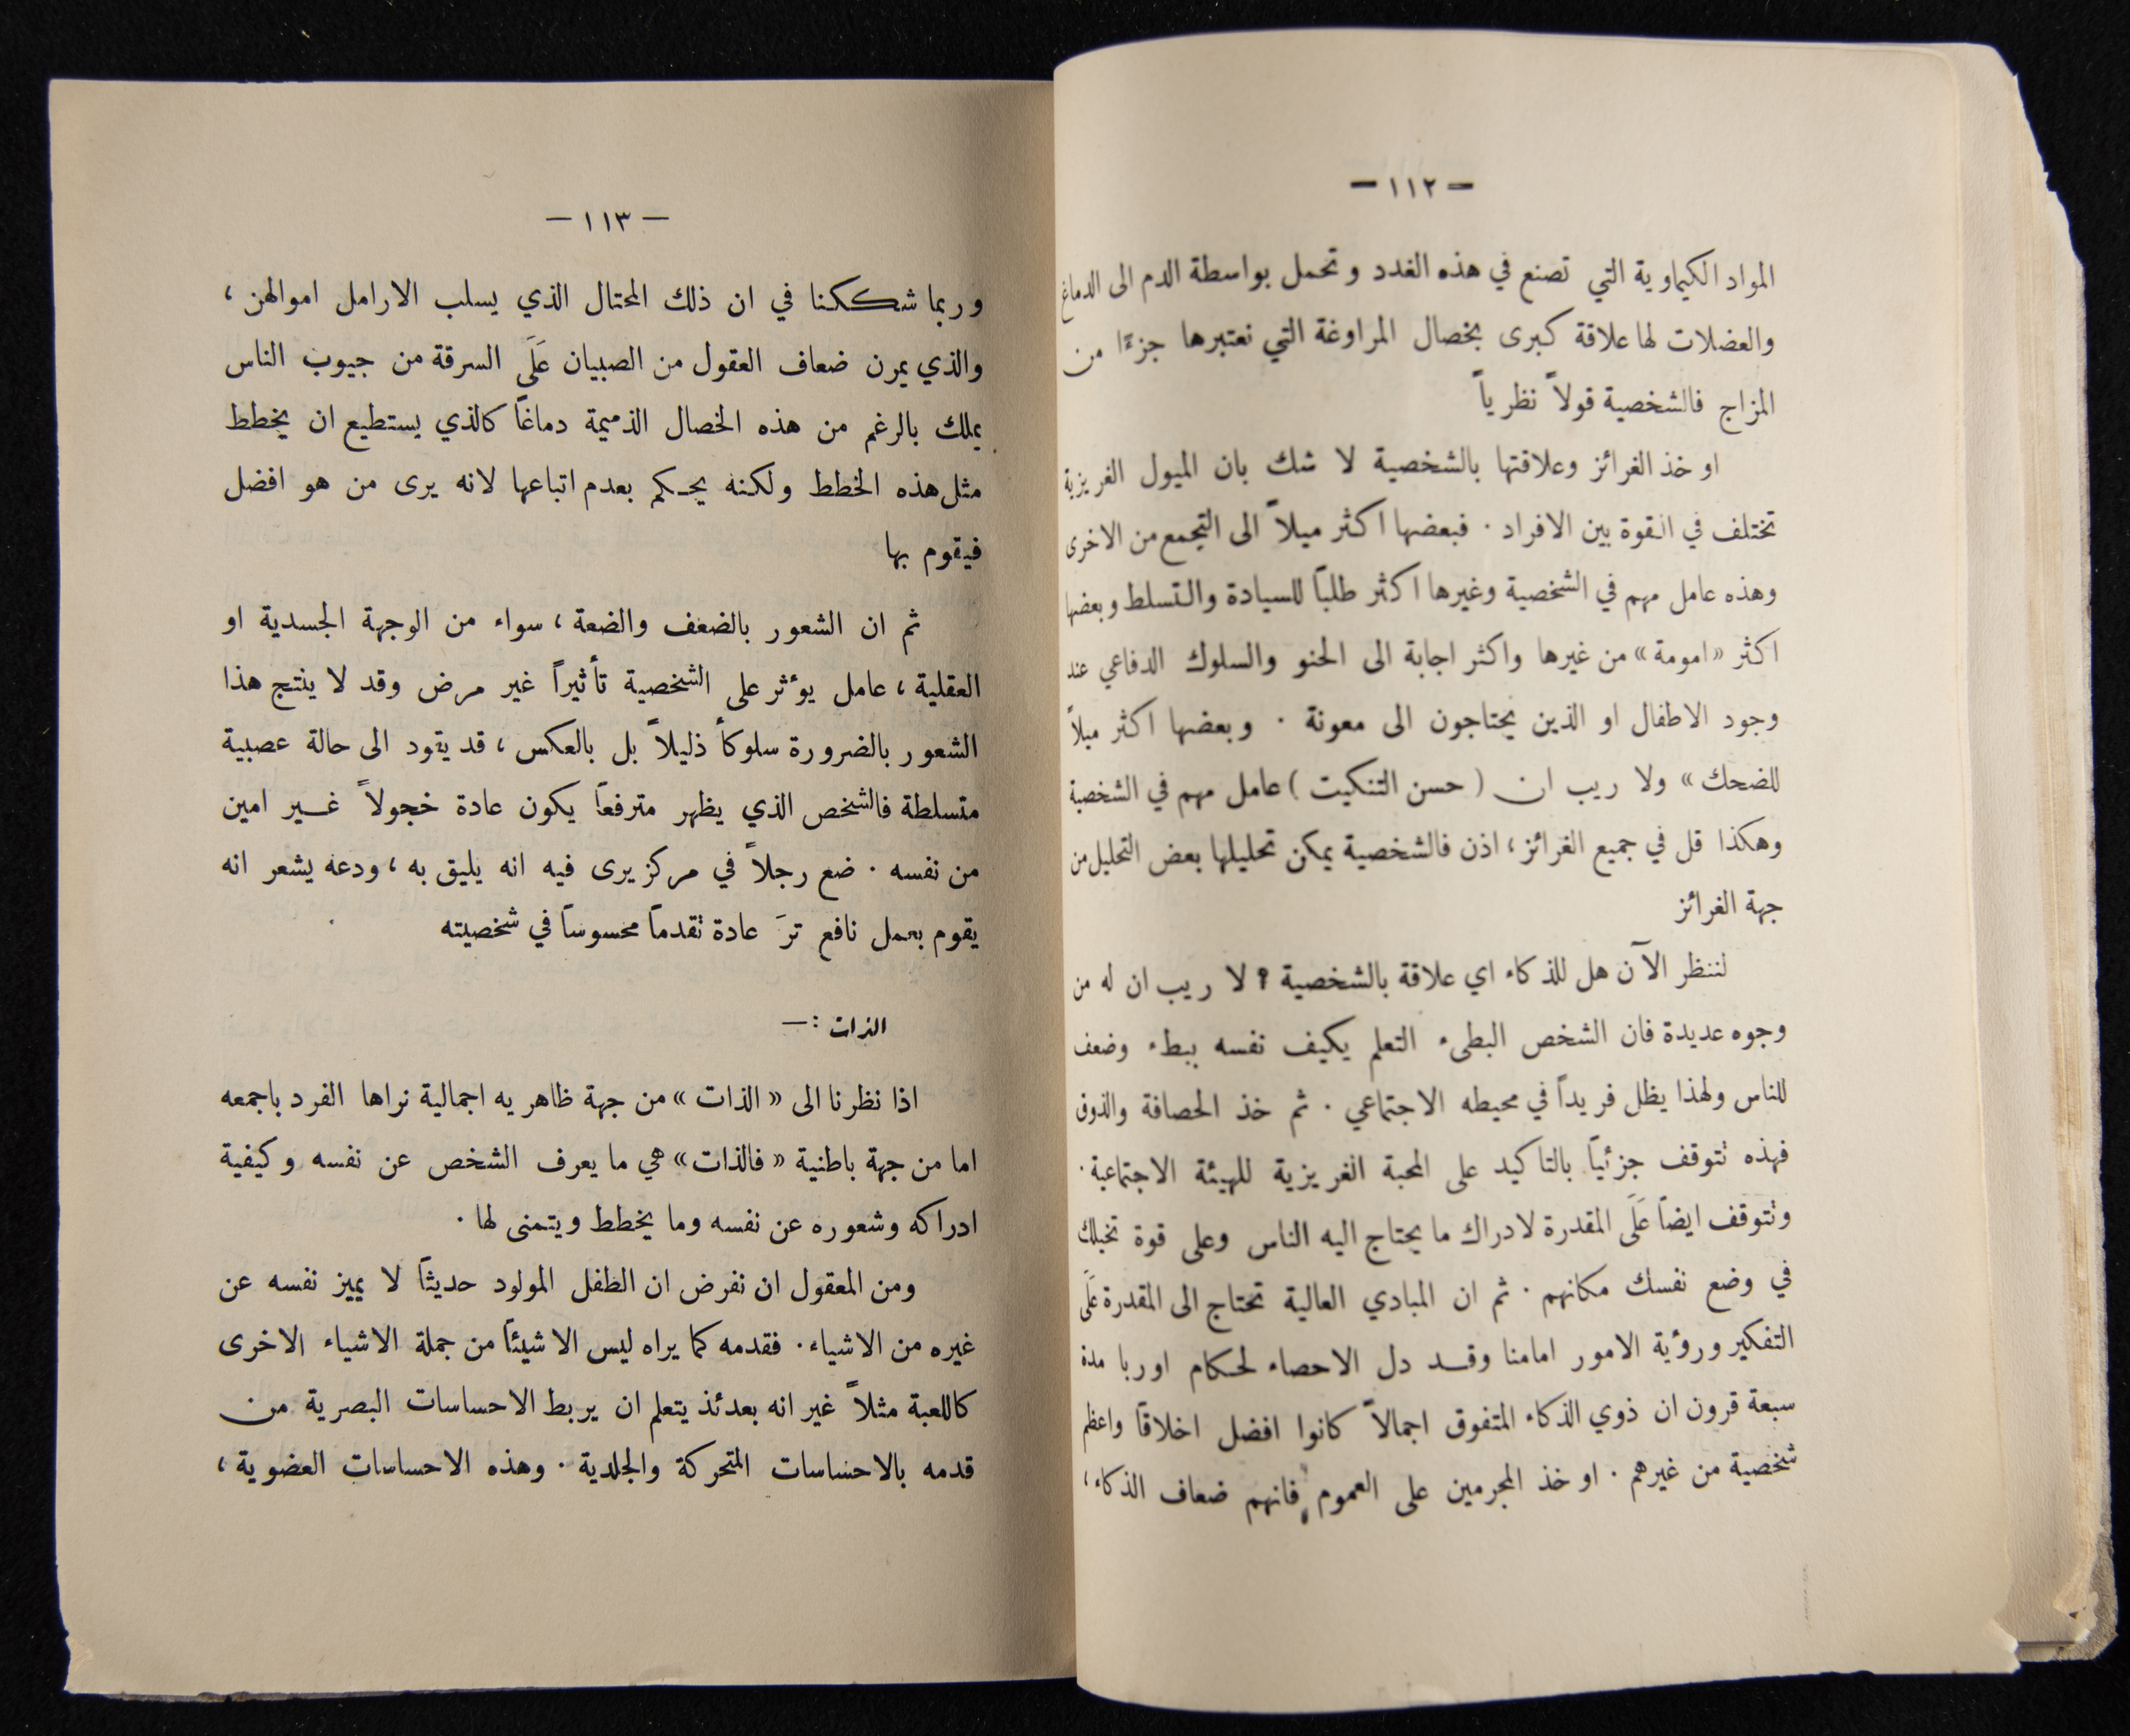 — ١١٢ —
المواد الكيماوية التي تصنع في هذه الغدد وتحمل بواسطة الدم الى الدماغ
والعضلات لها علاقة كبرى بخصال المراوغة التي نعتبرها جزءًا من
المزاج فالشخصية قولاً نظرياً
او خذ الغرائز وعلاقتها بالشخصية لا شك بان الميول الغريزية
تختلف في القوة بين الافراد . فبعضها اكثر ميلاً الى التجمع من الاخرى
وهذه عامل مهم في الشخصية وغيرها اكثر طلباً للسيادة والتسلط وبعضها
اكثر «امومة» من غيرها واكثر اجابة الى الحنو والسلوك الدفاعي عند
وجود الاطفال او الذين يحتاجون الى معونة . وبعضها اكثر ميلاً
للضحك» ولا ريب ان ( حسن التنكيت ) عامل مهم في الشخصية
وهكذا قل في جميع الغرائز ، اذن فالشخصية يمكن تحليلها بعض التحليل من
جهة الغرائز
لننظر الآن هل للذكاء اي علاقة بالشخصية ؟ لا ريب ان له من
وجوه عديدة فان الشخص البطيء التعلم يكيف نفسه ببطء وضعف
للناس ولهذا يظل فريداً في محيطه الاجتماعي . ثم خذ الحصافة والذوق
فهذه تتوقف جزئياً بالتاكيد على المحبة الغريزية للهيئة الاجتماعية .
وتتوقف ايضاً عَلَى المقدرة لادراك ما يحتاج اليه الناس وعلى قوة تخيلك
في وضع نفسك مكانهم . ثم ان المبادي العالية تحتاج الى المقدرة عَلَى
التفكير ورؤية الامور امامنا وقد دل الاحصاء لحكام اوربا مدة
سبعة قرون ان ذوي الذكاء المتفوق اجمالاً كانوا افضل اخلاقاً واعظم
شخصية من غيرهم . او خذ المجرمين على العموم فانهم ضعاف الذكاء ،
— ١١٣ —
وربما شككنا في ان ذلك المحتال الذي يسلب الارامل اموالهن ،
والذي يمرن ضعاف العقول من الصبيان عَلَى السرقة من جيوب الناس
يملك بالرغم من هذه الخصال الذميمة دماغاً كالذي يستطيع ان يخطط
مثل هذه الخطط ولكنه يحكم بعدم اتباعها لانه يرى من هو افضل
فيقوم بها
ثم ان الشعور بالضعف والضعة ، سواء من الوجهة الجسدية او
العقلية ، عامل يوءثر على الشخصية تأثيراً غير مرض وقد لا ينتج هذا
الشعور بالضرورة سلوكاً ذليلاً بل بالعكس ، قد يقود الى حالة عصبية
متسلطة فالشخص الذي يظهر مترفعاً يكون عادة خجولاً غير امين
من نفسه . ضع رجلاً في مركز يرى فيه انه يليق به ، ودعه يشعر انه
يقوم بعمل نافع ترَ عادة تقدماً محسوساً في شخصيته
الذات :—
اذا نظرنا الى « الذات » من جهة ظاهريه اجمالية نراها الفرد باجمعه
اما من جهة باطنية « فالذات » هي ما يعرف الشخص عن نفسه وكيفية
ادراكه وشعوره عن نفسه وما يخطط ويتمنى لها .
ومن المعقول ان نفرض ان الطفل المولود حديثاً لا يميز نفسه عن
غيره من الاشياء . فقدمه كما يراه ليس الا شيئاً من جملة الاشياء الاخرى
كاللعبة مثلاً غير انه بعدئذ يتعلم ان يربط الاحساسات البصرية من
قدمه بالاحساسات المتحركة والجلدية . وهذه الاحساسات العضوية ،